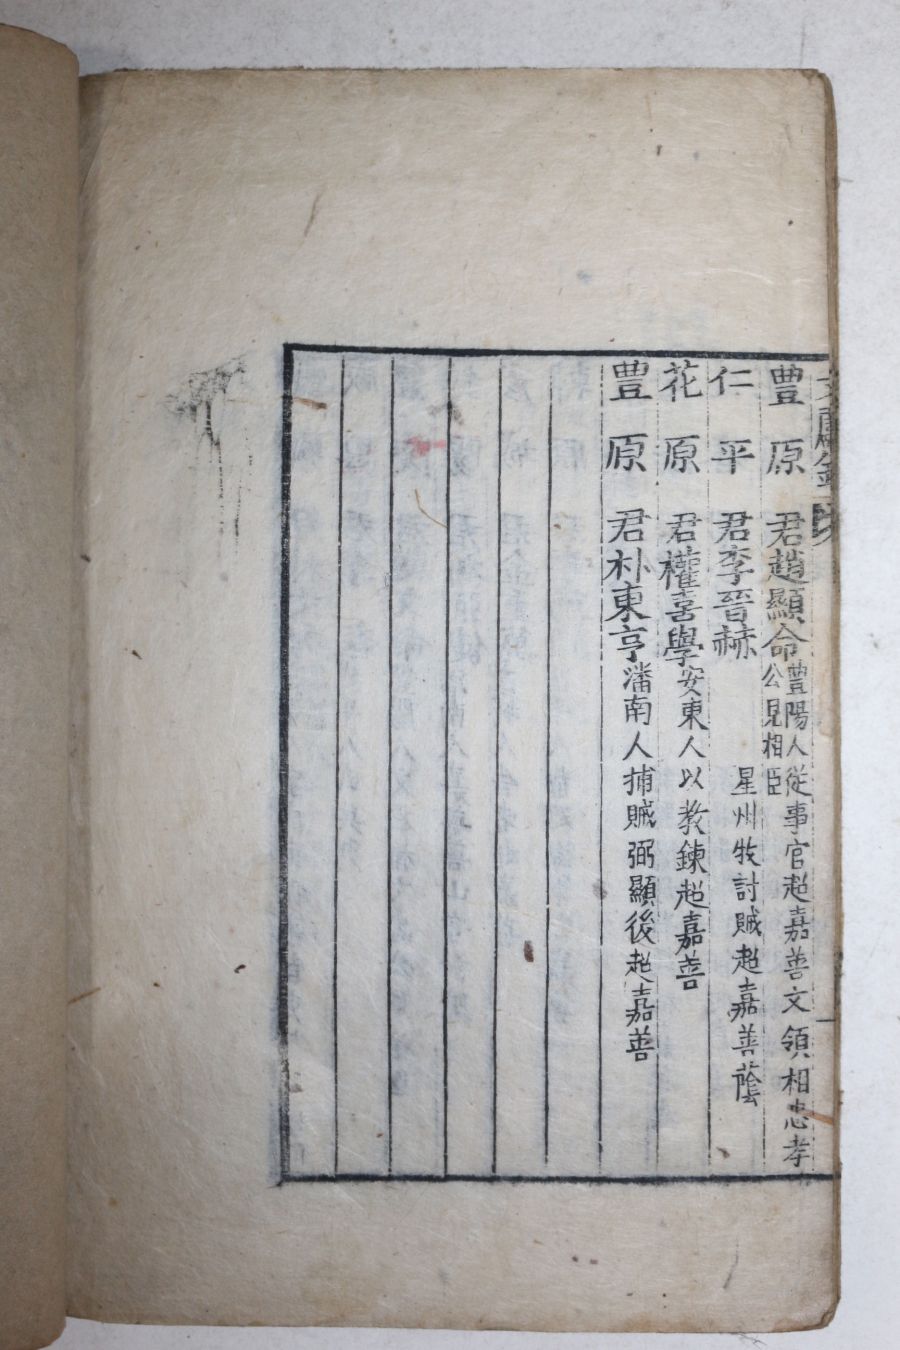 豊原君趙顯命豊陽人從事官超嘉善文領相忠孝
公見相臣
仁平君李晉赫 星州牧討賊超嘉善蔭
花原君權喜學安東人以教鍊超嘉善
豊原君朴東亨潘南人捕賊弼顯後超嘉善